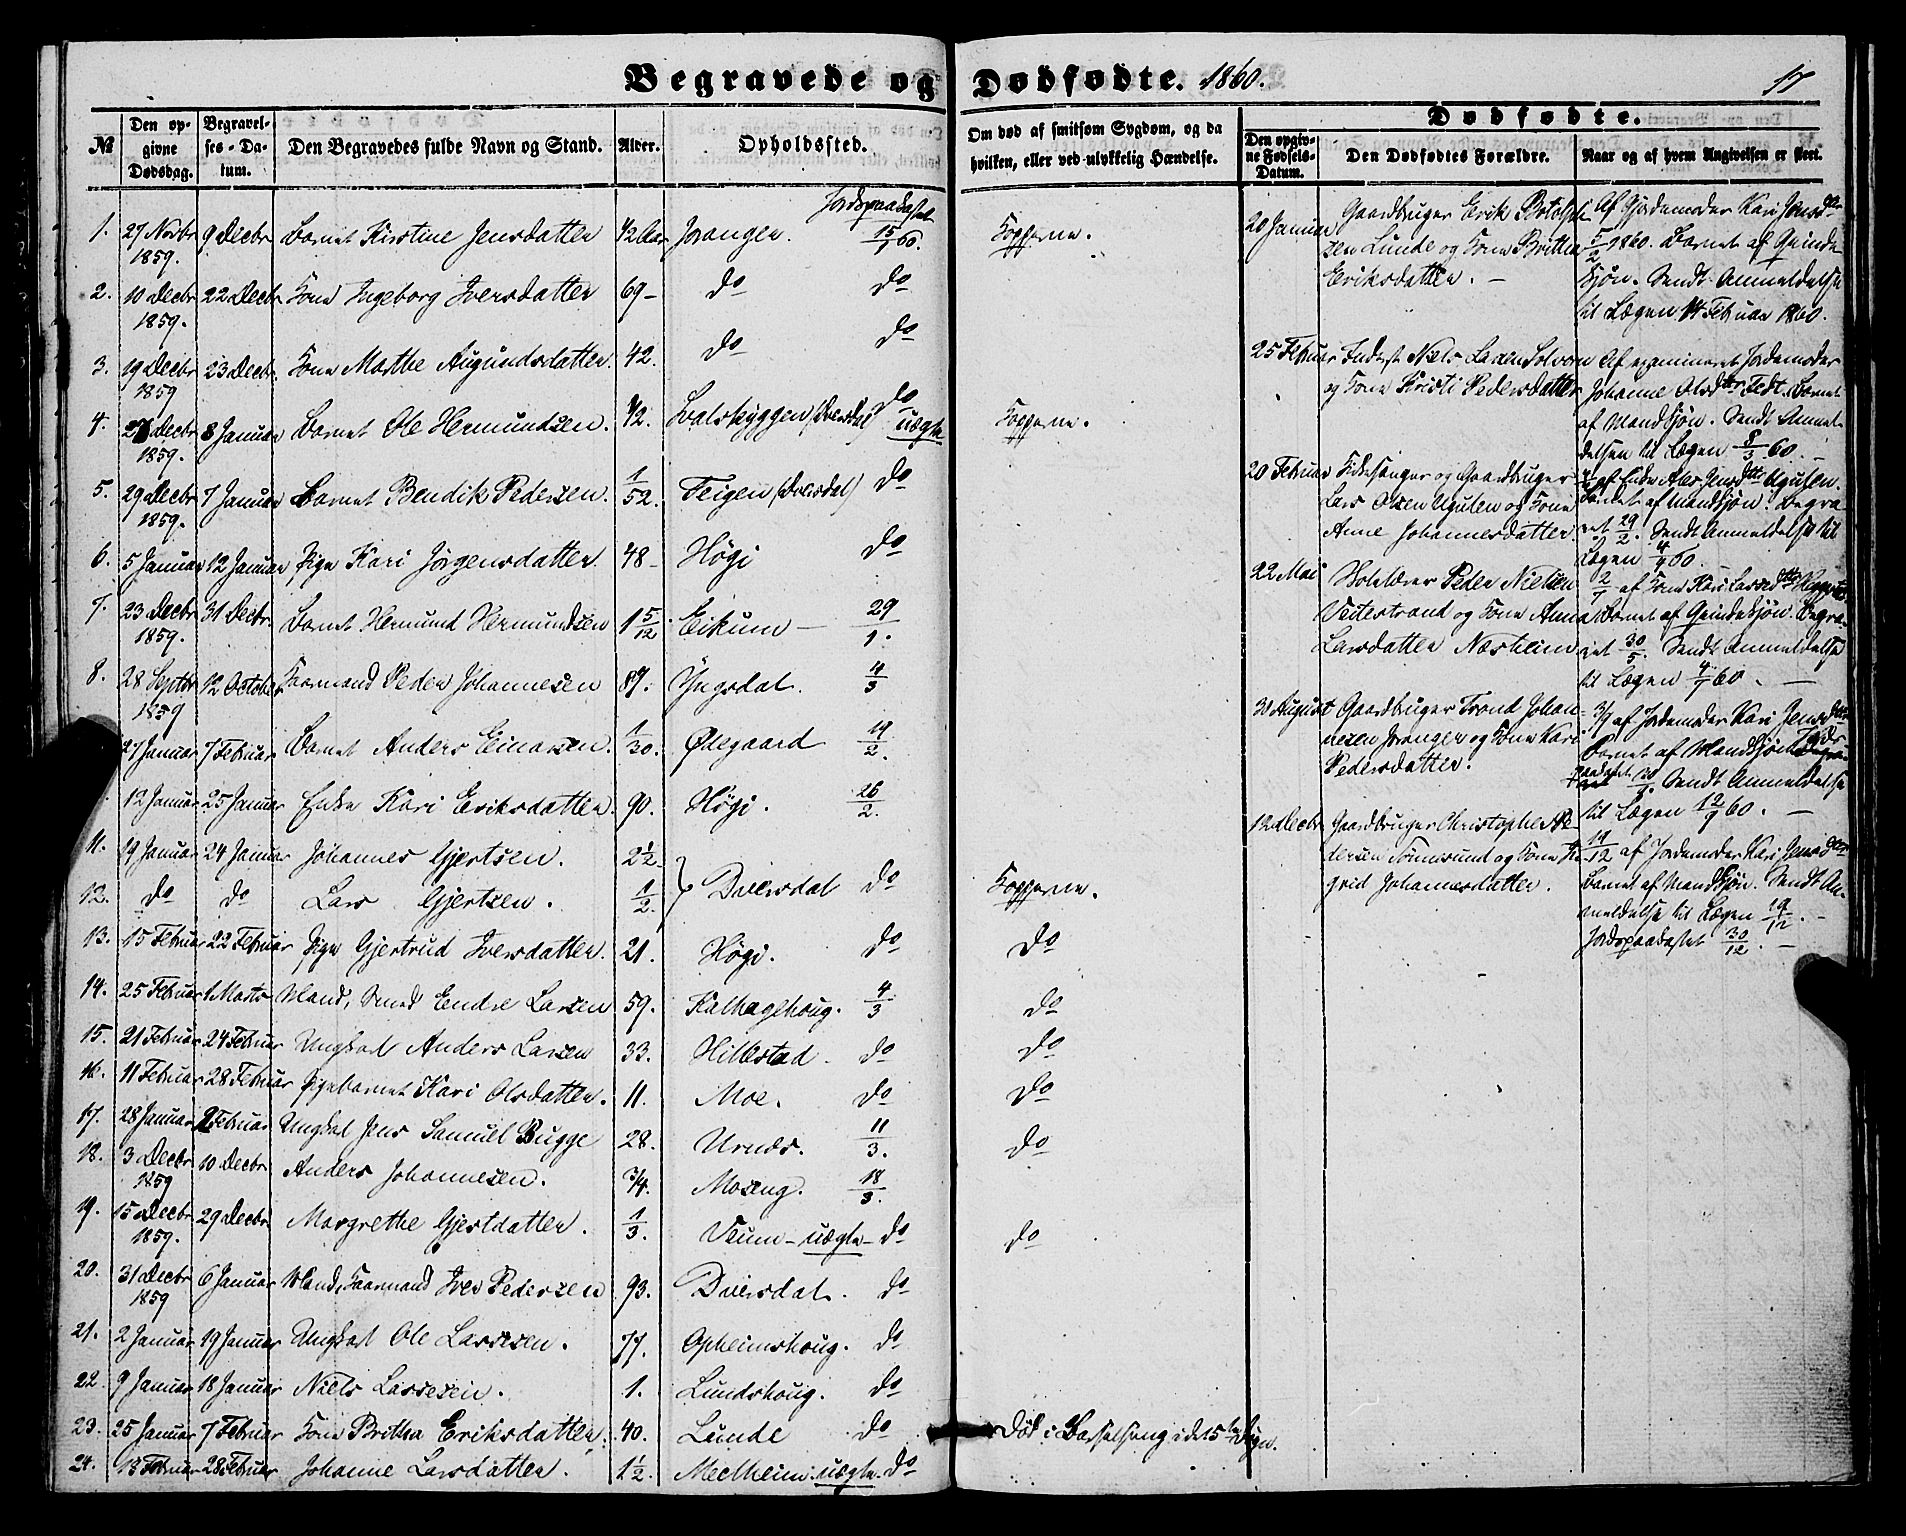 Begravede og Dødfødte. 1860. 17
№ Den opgivne Dødsdag. Begravelses-Datum. Den Begravedes fulde Navn og Stand. Alder. Opholdssted. Om død af smitsom Sygdom, og da hvilken, eller ved ulykkelig Hændelse.
Jordspaakastet
1. 27 Novbr 1859. 9 Decbr Barnet Kirstine Jensdatter 1/2 Aar Joranger. 15/1 60. Kopperne.
2. 10 Decbr 1859. 22 Decbr Kone Ingeborg Iversdatter 69 - do do
3. 19 Decbr 1859 23 Decbr. Kone Marthe Augundsdatter. 42. do do
4. Decbr 1859. 8 Januar Barnet Ole Hermundsen. 1/2. (Dversdal) uægte do Kopperne.
5. 29 Decbr 1859. 7 Januar Barnet Bendik Pedersen. 1/52. Feigen (Dversdal) do
6. 5 Januar 12 Januar Pige Kari Jørgensdatter 48 - Høgi do
7. 23 Decbr 1859. 31 Decbr. Barnet Hermund Hermundsen 1 5/12 Eikum - 29/1.
8. 28 Septbr 1859 12 October Kaarmand Peder Johannesen 89. Yngsdal. 4/3
27 Januar 7 Februar Barnet Anders Einarsen. 1/30. Ødegaard 19/2.
12 Januar 25 Januar Enke Kari Eriksdatter. 90. Høgi. 26/2.
11. 19 Januar 24 Januar Johannes Gjertsen. 2 1/2. Dversdal do
12. do do Lars Gjertsen. 1/2. Kopperne.
13. 15 Februar 22 Februar Pige Gjertrud Iversdatter. 21. Høgi. do do
14. 25 Februar 1 Marts Mand, Smed Endre Larsen 59. Kalhagehoug. 4/3 do
15. 21 Februar 24 Februar Ungkarl Anders Larsen 33. Hillestad. do do
16. 11 Februar 28 Februar Pigebarnet Kari Olsdatter. 11. Moe. do do
17. 28 Januar Februar Ungkarl Jens Samuel Bugge 28. Urnæs. 11/3. do
18. 3 Decbr 1859 10 Decbr. Anders Johannesen. 3/4. Moseng. 18/3.
19. 15 Decbr 1859. 29 Decbr Margrethe Gjertdatter. 1/3. Veum - uægte - do do
20. 31 Decbr 1859 6 Januar Mand, Kaarmand Iver Pedersen 93. Dversdal. do
21. 2 Januar 19 Januar Ungkarl Ole Lassesen. 77. Opheimshoug. do
22. 9 Januar 18 Januar Niels Lassesen. 1. Lundshoug. do
23. 25 Januar 7 Februar Kone Britha Eriksdatter. 40. Lunde do Død i Barselseng i det 5te Døgn.
24. 18 Februar 28 Februar Johanne Larsdatter. 1 1/2. Melheim. uægte. do
Dødfødte.
Den opgivne Fødsels-Datum. Den Dødfødtes Forældre. Naar og af hvem Angivelsen er skeet.
20 Januar Gaardbruger Erik Botolf-
sen Lunde og Kone Britha
Eriksdatter. -
Af Gjordemoder Kari Jensdtr
5/2 1860. Barnet af Qvinde-
kjøn. Sendt Anmeldelse
til Lægen 14 Februar 1860.
25 Februar Inderst Niels Larsen Solvorn
og Kone Kristi Pedersdatter
Af examineret Jordemoder
Johanne Olsdtr Fedt. Barnet
af Mandkjøn. Sendt Anmel-
delsen til Lægen 8/3 60. -
20 Februar Kirkesanger og Gaardbruger
Lars Olsen Ugulen og Kone
Anne Johannesdatter.
af Enke Jensdtr Ugulen.
Barnet af Mandkjøn. Begra-
vet 29/2. Sendt Anmeldelse til
Lægen 4/4 60.
22 Mai Peder Nielsen
Veitestrand og Kone Anna
Larsdatter Næsheim
2/7 af Kone Kari Lassedtr
Barnet af Qvindekjøn. Begra-
vet 30/5. Sendt Anmeldelse
til Lægen 4/7 60. -
30 August Gaardbruger Trond Johan-
nesen Joranger og Kone Kari
Pedersdatter.
3/9 af Jordemoder Kari Jensdtr
Barnet af Mandkjøn. Jords-
paakastet Sendt Anmeldelse
til Lægen 12/9 60. -
12 Decbr Gaardbruger Christopher Pe-
dersen Sørnesund og Kone In-
grid Johannesdatter.
19/12 af Jordemoder Kari Jensdtr
Barnet af Mandkjøn. Sendt An-
meldelse til Lægen 19/12. -
Jordspaakastet 30/12. -